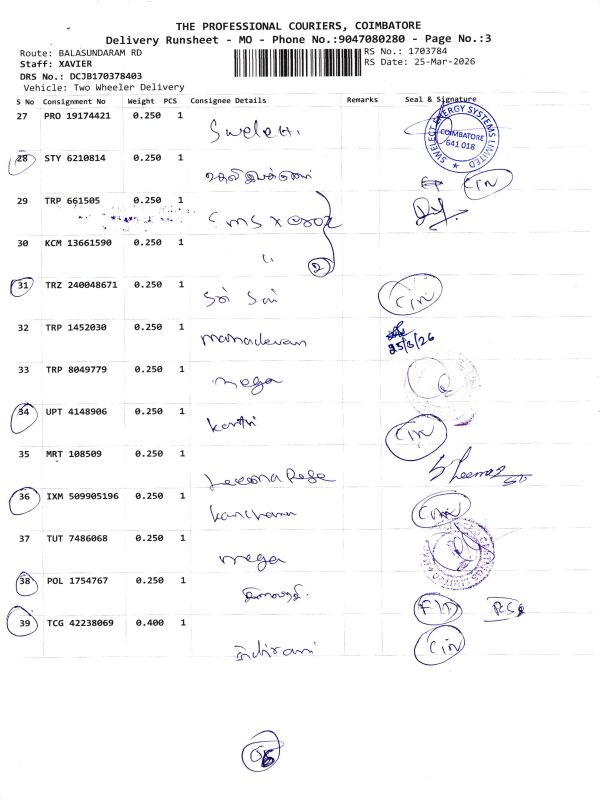 THE PROFESSIONAL COURIERS, COIMBATORE
Delivery Runsheet - MO - Phone No.:9047080280 - Page No.:3
Route: BALASUNDARAM RD
RS No.: 1703784
Staff: XAVIER
RS Date: 25-Mar-2026
DRS No.: DCJB170378403
Vehicle: Two Wheeler Delivery
S No Consignment No Weight PCS Consignee Details Remarks Seal & Signature
27 PRO 19174421 0.250 1
SWELECT ENERGY SYSTEMS LIMITED
COIMBATORE
641 018
28 STY 6210814 0.250 1
CIN
29 TRP 661505 0.250 1
30 KCM 13661590 0.250 1
2
31 TRZ 240048671 0.250 1
Sri Sai CIN
32 TRP 1452030 0.250 1
mahadevan 25/3/26
33 TRP 8049779 0.250 1
mega
34 UPT 4148906 0.250 1
karthi CIN
35 MRT 108509 0.250 1
36 IXM 509905196 0.250 1
kanchana CIN
37 TUT 7486068 0.250 1
mega
38 POL 1754767 0.250 1
39 TCG 42238069 0.400 1
CIN